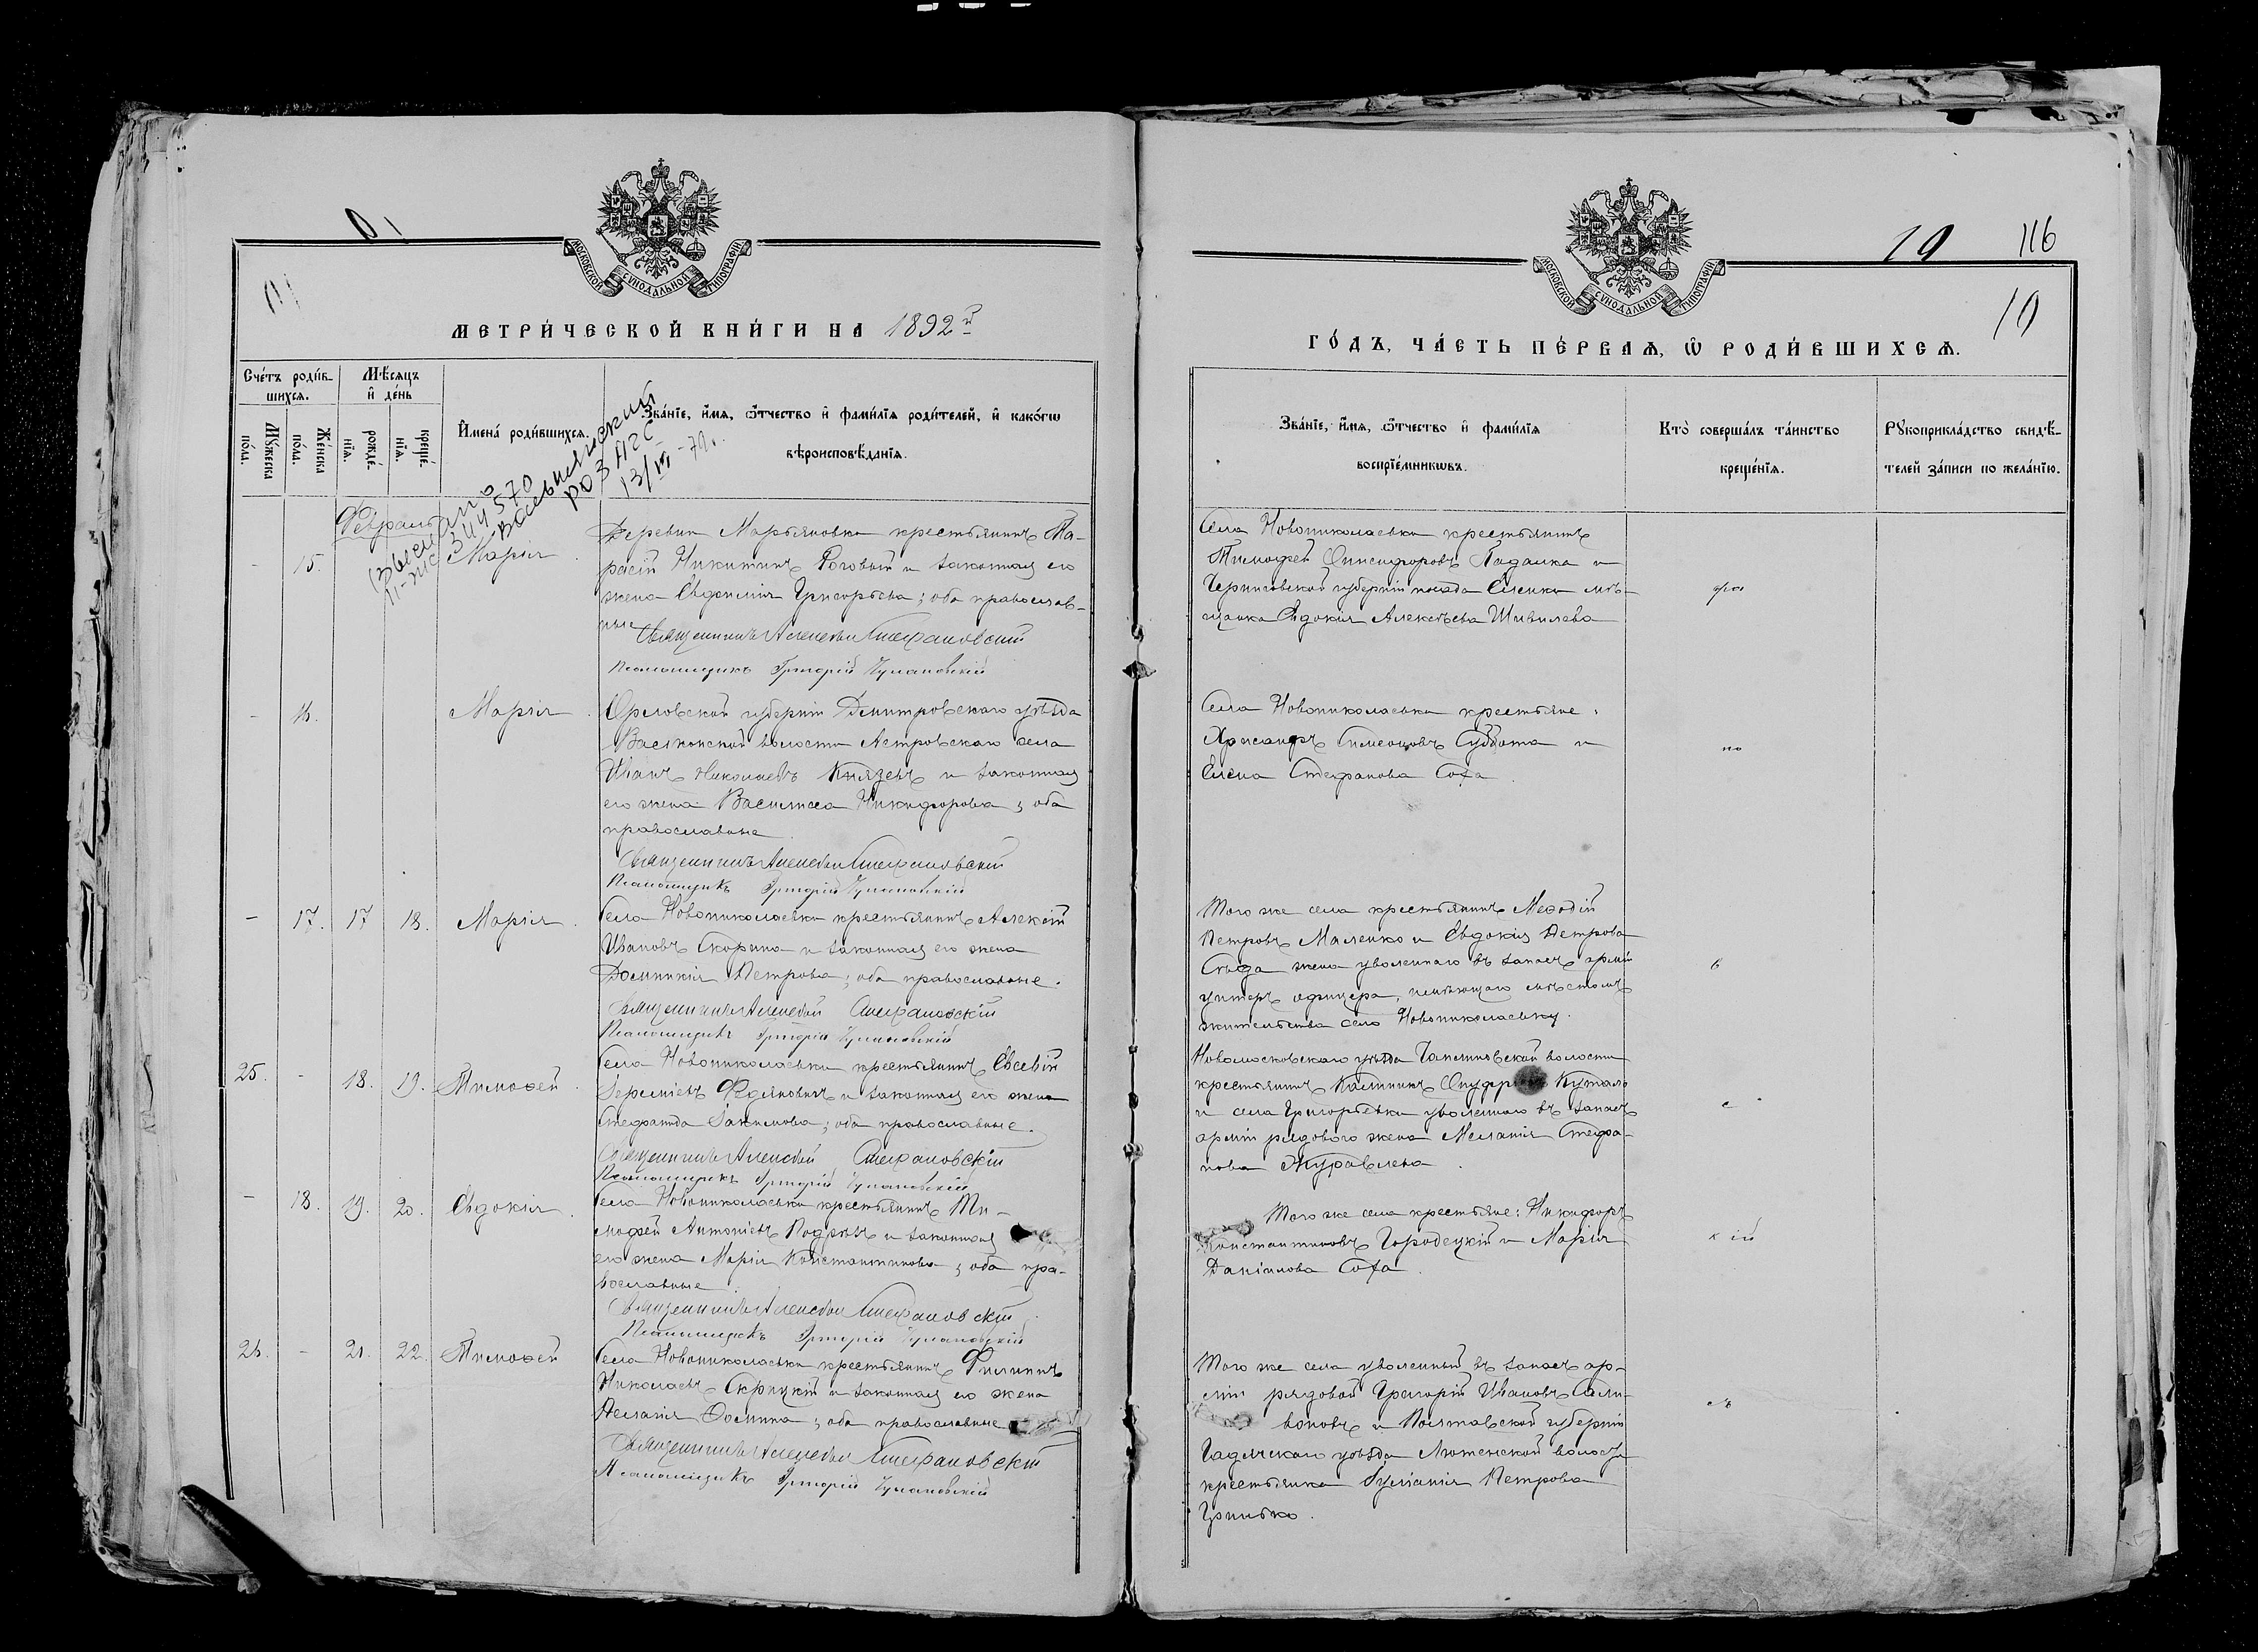 МОСКОВСКОЙ СѴНОДАЛЬНОЙ ТИПОГРАФІИ
МЕТРИ́ЧЕСКОЙ КНИ́ГИ НА 1892й
Сче́тъ роди́в-
шихсѧ.
Мѣ́сѧцъ
и҆ де́нь
Мꙋ́жеска по́ла.
Же́нска по́ла.
рожде́-
нїѧ.
креще́-
нїѧ.
И҆мена̀ роди́вшихсѧ.
Зва́нїе, и҆́мѧ, ѻ҆́тчество и҆ фами́лїѧ роди́телей, и҆ како́гѡ
вѣроисповѣ́данїѧ.
Февраль
13/IV-79г.
- 15. Марія
Деревни Марьяновки крестьянинъ Та-
расій Никитинъ Роговый и законная его
жена Евдокимія Григорьева; оба православ-
ные
Священникъ Алексѣй Стефановскій
Псаломщикъ Григорій
- 16. Марія
Орловской губерніи Дмитровскаго уѣзда
волости Петровскаго села
Иванъ Николаевъ Князевъ и законная
его жена Василиса Никифорова; оба
православные
Священникъ Алексѣй Стефановскій
Псаломщикъ Григорій
- 17. 17 18. Марія
Села Новониколаевки крестьянинъ Алексій
Ивановъ Скорина и законная его жена
Домникія Петрова; оба православные.
Священникъ Алексѣй Стефановскій
Псаломщикъ Григорій
25. - 18. 19. Тимоѳей
Села Новониколаевки крестьянинъ Евсевій
Іереміевъ и законная его жена
Стефанида Іакимова; оба православные.
Священникъ Алексѣй Стефановскій
Псаломщикъ Григорій
- 18. 19. 20. Евдокія
Села Новониколаевки крестьянинъ Ти-
мофей Антоніевъ и законная
его жена Марія Константинова; оба пра-
вославные
Священникъ Алексѣй Стефановскій
Псаломщикъ Григорій
26. - 21. 22. Тимоѳей
Села Новониколаевки крестьянинъ Филиппъ
Николаевъ Скрицкій и законная его жена
Пелагія Ѳомина; оба православные
Священникъ Алексѣй Стефановскій
Псаломщикъ Григорій
МОСКОВСКОЙ СѴНОДАЛЬНОЙ ТИПОГРАФІИ
10 116
10
ГО́ДЪ, ЧА́СТЬ ПЕ́РВАѦ, Ѽ РОДИ́ВШИХСѦ.
Зва́нїе, и҆́мѧ, ѻ҆́тчество и҆ фами́лїѧ
воспрїе́мникѡвъ.
Кто̀ соверша́лъ та́инство
креще́нїѧ.
Рꙋкоприкла́дство свидѣ́-
телей за́писи по жела́нїю.
Села Новониколаевки крестьянинъ
Тимофей Онисифоровъ Падалка и
Черниговской губерніи посада Еленки мѣ-
щанка Евдокія Алексѣева Шивилева
Села Новониколаевки крестьяне:
Хрисанфъ Симеоновъ Суббота и
Елена Стефанова Соха
по
Того же села крестьянинъ Меѳодій
Петровъ Маленко и Евдокія Петрова
жена уволеннаго въ запасъ арміи
унтеръ офицера, имѣющаго мѣстомъ
жительства село Новониколаевку.
в
Новомосковскаго уѣзда волости
крестьянинъ Калиникъ
и села Григорьевки уволеннаго въ запасъ
арміи рядового жена Меланія Стефа-
нова Журавлева
с
Того же села крестьяне: Никифоръ
Константиновъ Городецкій и Марія
Даніилова Соха
к ій
Того же села уволенный въ запасъ ар-
міи рядовой Григорій Ивановъ Сели-
вановъ и Полтавской губерніи
Гадячскаго уѣзда Лютенской волости
крестьянка Іуліанія Петрова